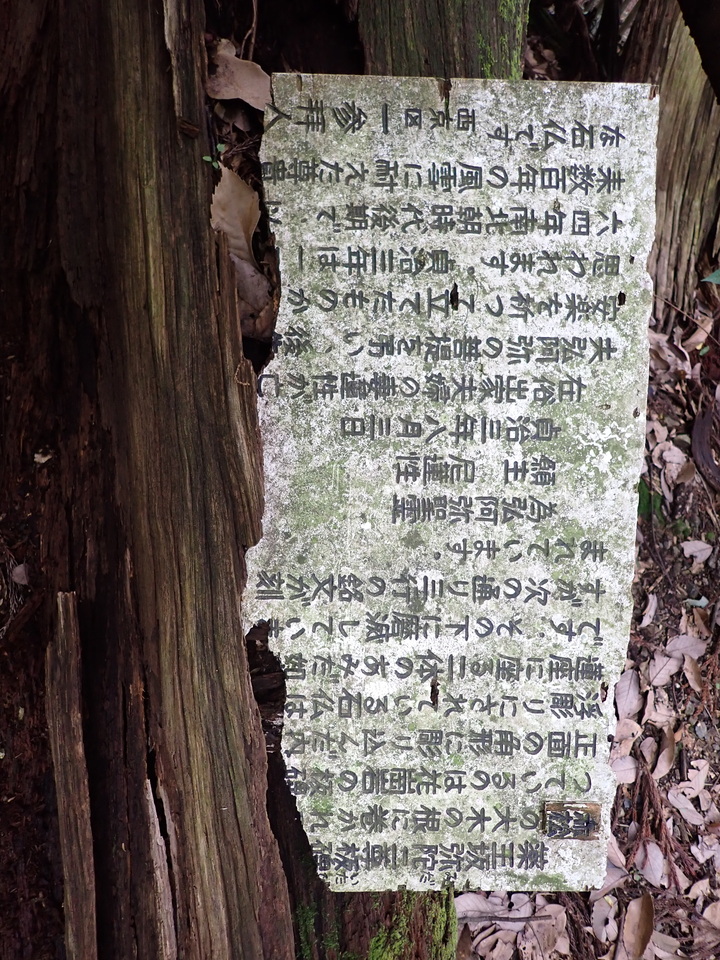 薬王坂弥陀二尊板碑
赤松の大木の根に巻かれ
っているのは花崗岩の板碑
正面の角形に彫り込んだ
浮彫りにされている石仏は
蓮座に座る二体のあみだ如
です。その下に磨滅していま
すが次の通り三行の銘文が刻
まれています。
為弘阿弥聖霊
願主 尼蓮性
貞治三年八月三日
在俗出家夫婦の妻蓮性が亡
夫弘阿弥の菩提を弔い、後
安楽を祈って立てたものか
思われます。貞治三年は一
六四年南北朝時代後期で、以
来数百年の風雪に耐えた尊貴
な石仏です 西京区一参拝人